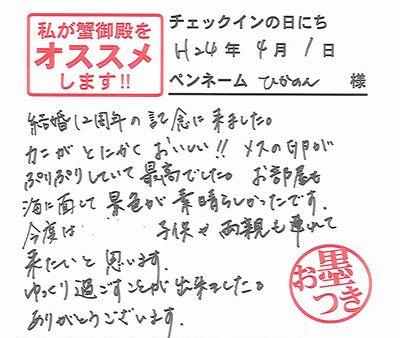 私が蟹御殿を
オススメ
します!!
チェックインの日にち
H24年 4月 1日
ペンネーム ひかのん 様
結婚12周年の記念に来ました。
カニがとにかくおいしい!! メスの卵が
ぷりぷりしていて最高でした。お部屋も
海に面して景色が素晴らしかったです。
今度は 子供や両親も連れて
来たいと思います
ゆっくり過ごすことが出来ました。
ありがとうございます.
お墨つき